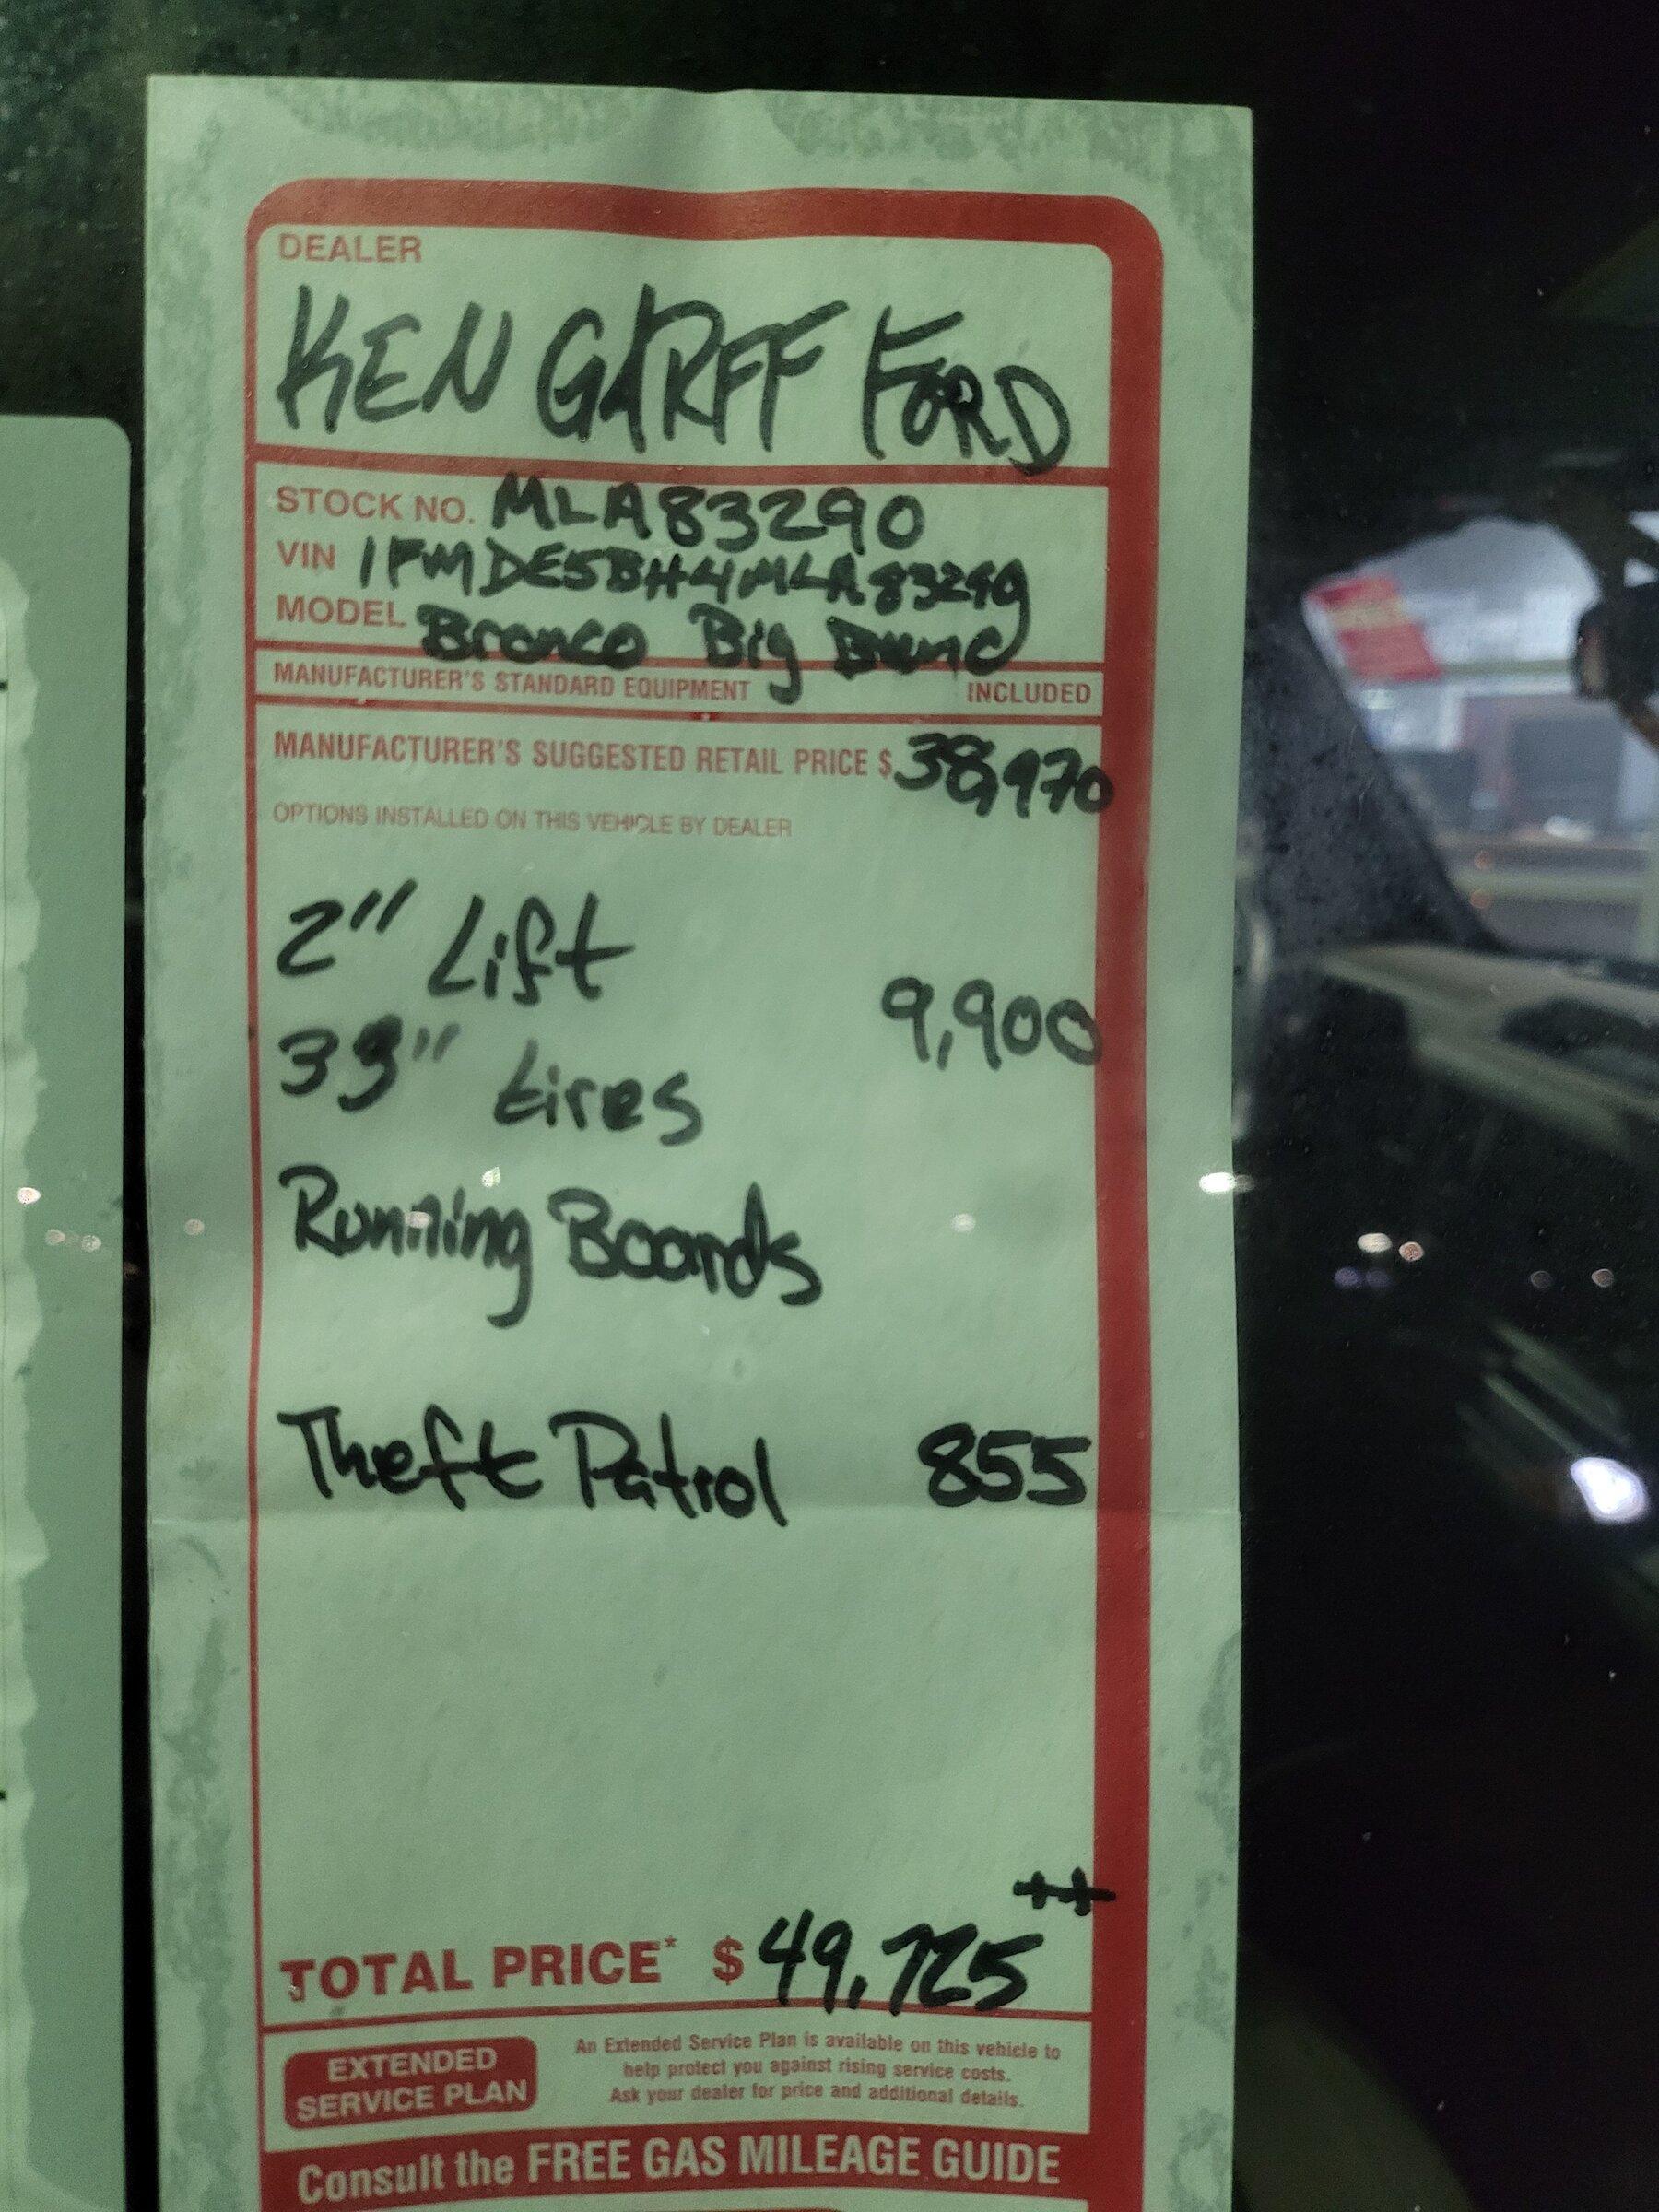 DEALER
KEN GARFF FORD
STOCK NO. MLA83290
VIN 1FMDE5BH4MLA83290
MODEL Bronco Big Bend
MANUFACTURER'S STANDARD EQUIPMENT INCLUDED
MANUFACTURER'S SUGGESTED RETAIL PRICE $ 38,970
OPTIONS INSTALLED ON THIS VEHICLE BY DEALER
2" Lift
9,900
33" tires
Running Boards
Theft Patrol 855
++
TOTAL PRICE* $ 49,725
EXTENDED SERVICE PLAN
An Extended Service Plan is available on this vehicle to
help protect you against rising service costs.
Ask your dealer for price and additional details.
Consult the FREE GAS MILEAGE GUIDE